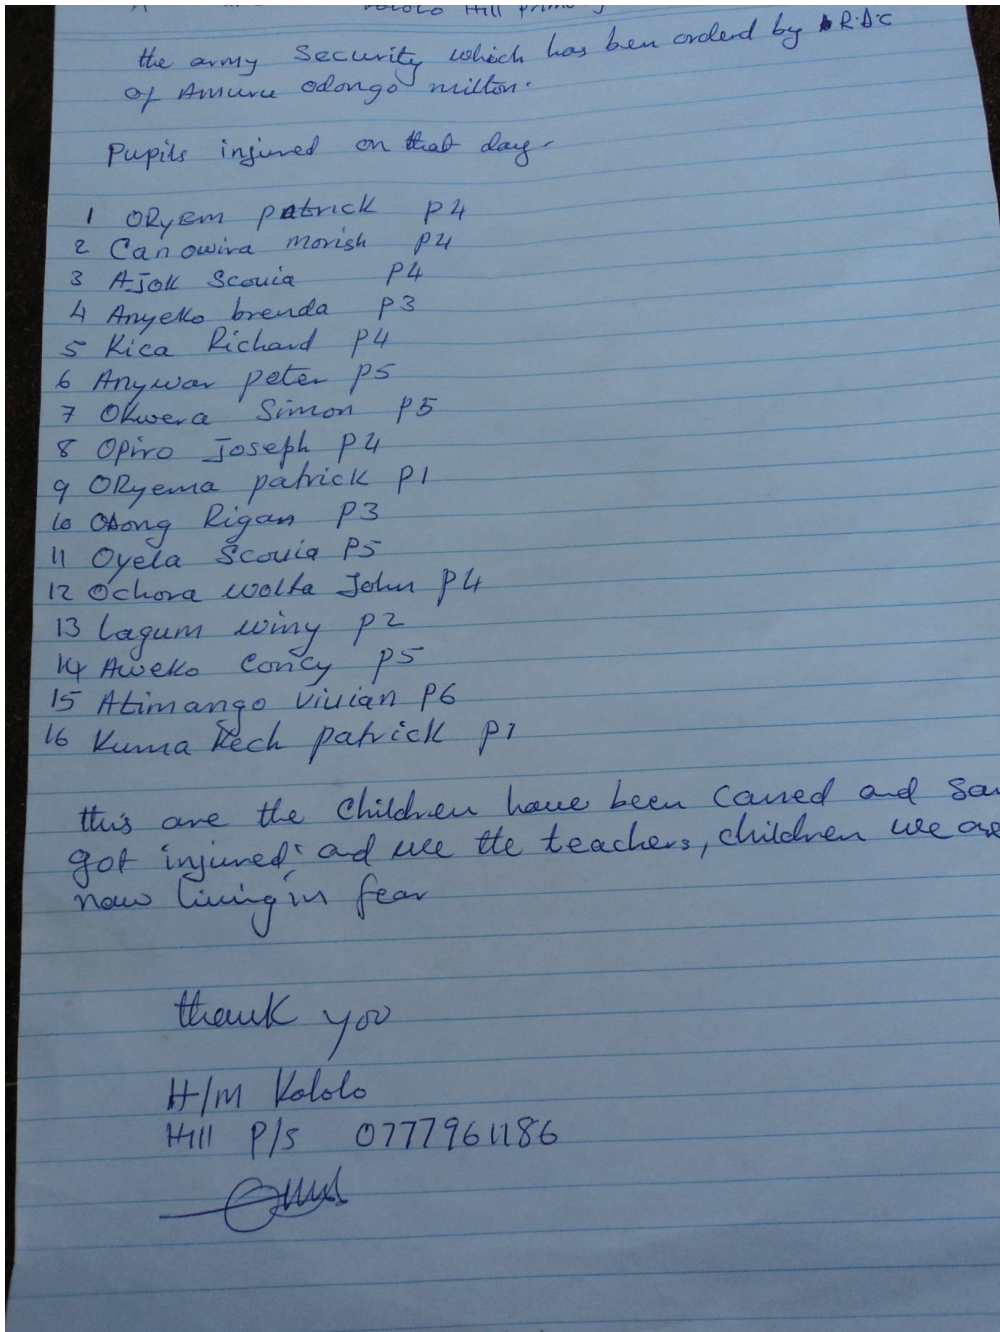 Kololo Hill prim
the army Security which has ben orderd by R.D.C
of Amuru Odongo milton.
Pupils injured on that day-
1 ORyEm patrick P4
2 Canowira morish P4
3 AJok Scovia P4
4 Anyeko brenda P3
5 Rica Richard P4
6 Anywar peter P5
7 Okwera Simon P5
8 Opiro Joseph P4
9 ORyema patrick P1
10 Odong Rigan P3
11 Oyela Scovia P5
12 Ochora wolta John P4
13 Lagum winy P2
14 Aweko Concy P5
15 Atimango Vivian P6
16 Kuma Kech patrick P1
this are the Children have been Caned and
got injured: and we the teachers, children we are
now living in fear
thank you
H/M Kololo
Hill P/S 0777961186